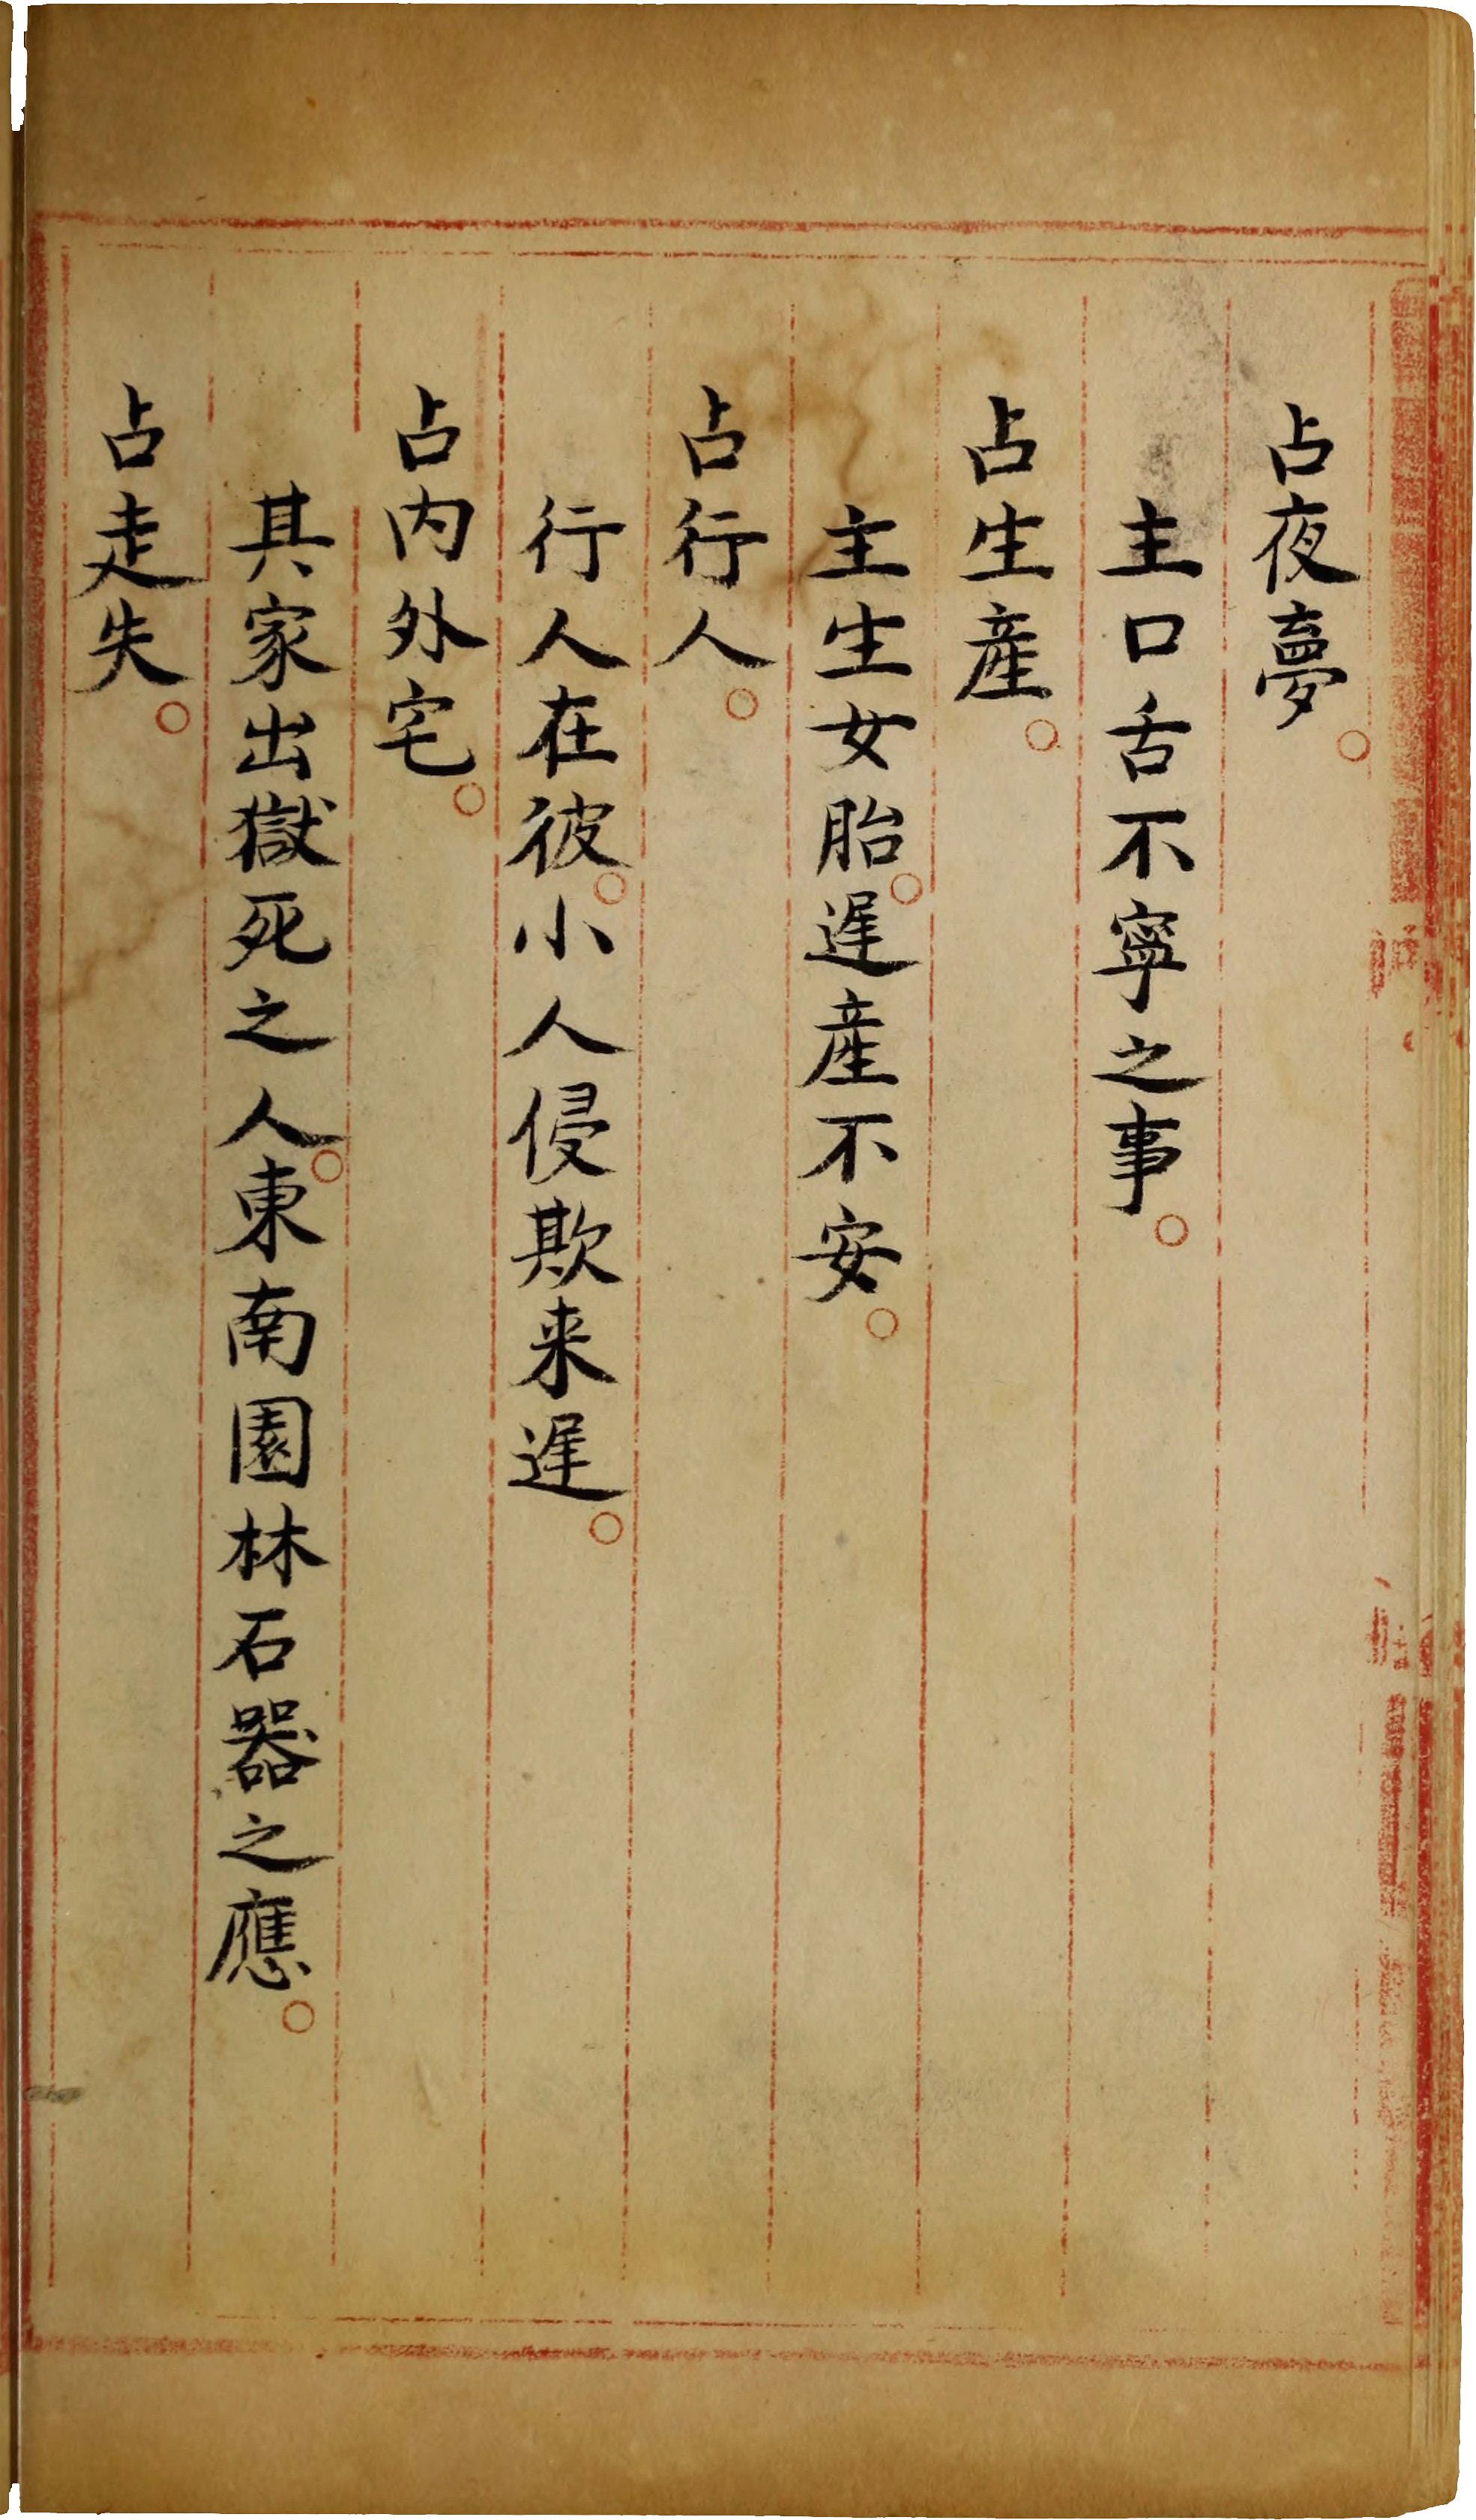 占夜夢。
主口舌不寧之事。
占生產。
主生女胎。遲產不安。
占行人。
行人在彼。小人侵欺来遲。
占內外宅。
其家出獄死之人。東南園林石器之應。
占走失。